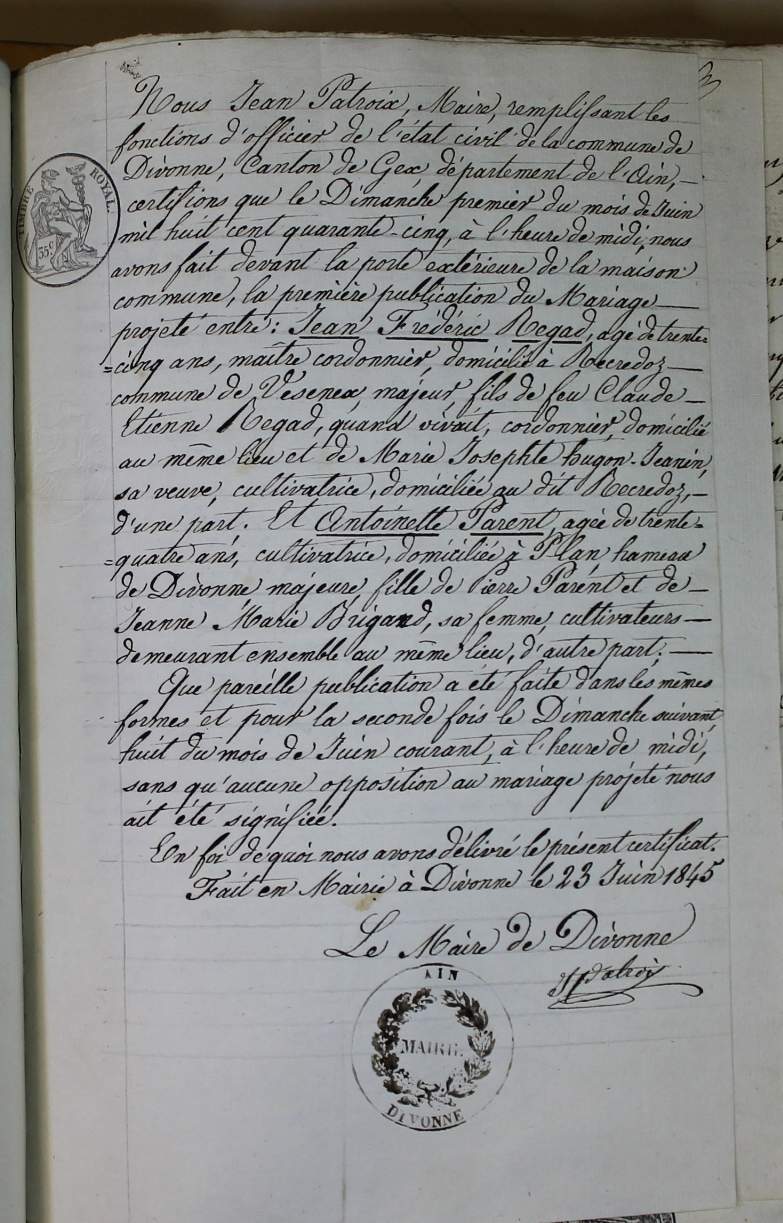 Nous Jean Patroix, Maire, remplissant les
fonctions d'officier de l'état civil de la commune de
Divonne, Canton de Gex, département de l'Ain, —
certifions que le Dimanche premier du mois de Juin
mil huit cent quarante-cinq, à l'heure de midi, nous
avons fait devant la porte extérieure de la maison
commune, la première publication du Mariage —
projeté entre: Jean Frédéric Regad, agé de trente=
=cinq ans, maître cordonnier, domicilié à Recredoz —
commune de Vesenex, majeur, fils de feu Claude —
Etienne Regad, quand vivait, cordonnier, domicilié
au même lieu et de Marie Josephte hugon-Jeanin,
sa veuve, cultivatrice, domiciliée au dit Recredoz, —
d'une part. Et Antoinette Parent, agée de trente=
=quatre ans, cultivatrice, domiciliée à Plan hameau
de Divonne majeure, fille de Pierre Parent et de —
Jeanne Marie Brigand, sa femme, cultivateurs —
demeurant ensemble au même lieu, d'autre part; —
Que pareille publication a été faite dans les mêmes
formes et pour la seconde fois le Dimanche suivant,
huit du mois de Juin courant, à l'heure de midi,
sans qu'aucune opposition au mariage projeté nous
ait été signifiée.
En foi de quoi nous avons délivré le présent certificat.
Fait en Mairie à Divonne le 23 Juin 1845
Le Maire de Divonne
TIMBRE ROYAL.
35 c
AIN
MAIRIE
DIVONNE